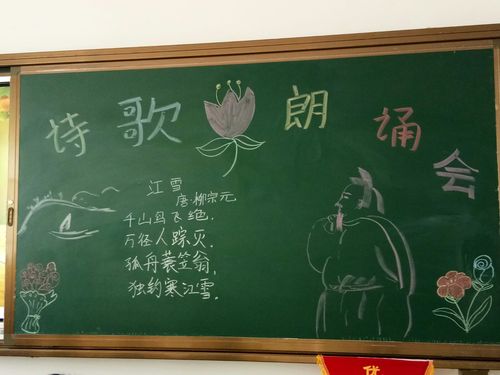 诗歌朗诵会
江雪
唐·柳宗元
千山鸟飞绝,
万径人踪灭.
孤舟蓑笠翁,
独钓寒江雪.
优